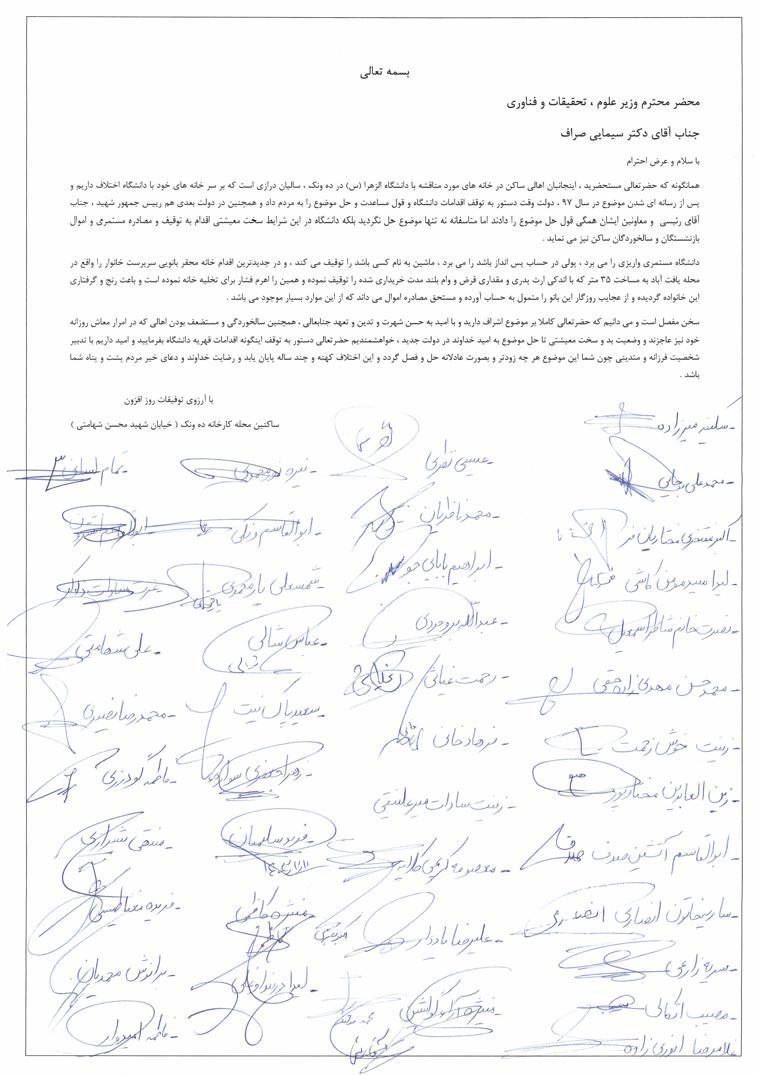 بسمه تعالی
محضر محترم وزیر علوم ، تحقیقات و فناوری
جناب آقای دکتر سیمایی صراف
با سلام و عرض احترام
همانگونه که حضرتعالی مستحضرید ، اینجانبان اهالی ساکن در خانه های مورد مناقشه با دانشگاه الزهرا (س) در ده ونک ، سالیان درازی است که بر سر خانه های خود با دانشگاه اختلاف داریم و
پس از رسانه ای شدن موضوع در سال ۹۷ ، دولت وقت دستور به توقف اقدامات دانشگاه و قول مساعدت و حل موضوع را به مردم داد و همچنین در دولت بعدی هم رییس جمهور شهید ، جناب
آقای رئیسی و معاونین ایشان همگی قول حل موضوع را دادند اما متاسفانه نه تنها موضوع حل نگردید بلکه دانشگاه در این شرایط سخت معیشتی اقدام به توقیف و مصادره مستمری و اموال
بازنشستگان و سالخوردگان ساکن نیز می نماید .
دانشگاه مستمری واریزی را می برد ، پولی در حساب پس انداز باشد را می برد ، ماشین به نام کسی باشد را توقیف می کند ، و در جدیدترین اقدام خانه محقر بانویی سرپرست خانوار را واقع در
محله یافت آباد به مساحت ۳۵ متر که با اندکی ارث پدری و مقداری قرض و وام بلند مدت خریداری شده را توقیف نموده و همین را اهرم فشار برای تخلیه خانه نموده است و باعث رنج و گرفتاری
این خانواده گردیده و از عجایب روزگار این بانو را متمول به حساب آورده و مستحق مصادره اموال می داند که از این موارد بسیار موجود می باشد .
سخن مفصل است و می دانیم که حضرتعالی کاملا بر موضوع اشراف دارید و با امید به حسن شهرت و تدین و تعهد جنابعالی ، همچنین سالخوردگی و مستضعف بودن اهالی که در امرار معاش روزانه
خود نیز عاجزند و وضعیت بد و سخت معیشتی تا حل موضوع به امید خداوند در دولت جدید ، خواهشمندیم حضرتعالی دستور به توقف اینگونه اقدامات قهریه دانشگاه بفرمایید و امید داریم با تدبیر
شخصیت فرزانه و متدینی چون شما این موضوع هر چه زودتر و بصورت عادلانه حل و فصل گردد و این اختلاف کهنه و چند ساله پایان یابد و رضایت خداوند و دعای خیر مردم پشت و پناه شما
باشد .
با آرزوی توفیقات روز افزون
ساکنین محله کارخانه ده ونک ( خیابان شهید محسن شهامتی )
- سکینه میرزاده
- محمدعلی رجایی
- عیسی نظری
- محمد ناظریان
- ابوالقاسم زنگی
- ابراهیم بابایی جو
- شمسعلی یارمحمدی
- عبدالله بروجردی
- عباس شالی
- علی شهامتی
- محمدحسن مهدی زاده حقی
- رحمت غیاثی
- سعید پاک نیت
- محمدرضا نصیری
- زینت خوش زحمت
- فرهاد خانی
- فاطمه گودرزی
- زین العابدین مختارپور
- زینت سادات میرعلینقی
- فرید سلیمیان
- معصومه کریمی
- علیرضا یاددار
- سریه زارعی
- مصیب اکمالی
- غلامرضا انوری زاده